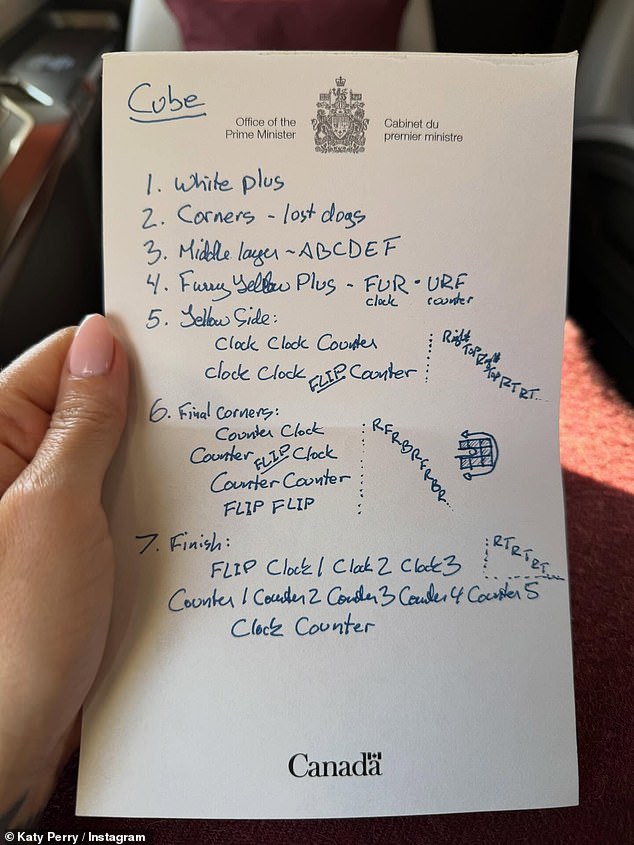 Cube
Office of the
Prime Minister
Cabinet du
premier ministre
1. White plus
2. Corners - lost dogs
3. Middle layer ~ ABCDEF
4. Furry Yellow Plus - FUR · URF
clock counter
5. Yellow Side:
Clock Clock Counter
Clock Clock FLIP Counter
Right Top Right Top RTRT...
6. Final Corners:
Counter Clock
Counter FLIP Clock
Counter Counter
FLIP FLIP
RFRBRFRBR...
7. Finish:
FLIP Clock 1 Clock 2 Clock 3
Counter 1 Counter 2 Counter 3 Counter 4 Counter 5
Clock Counter
RTRTRT...
Canada
© Katy Perry / Instagram